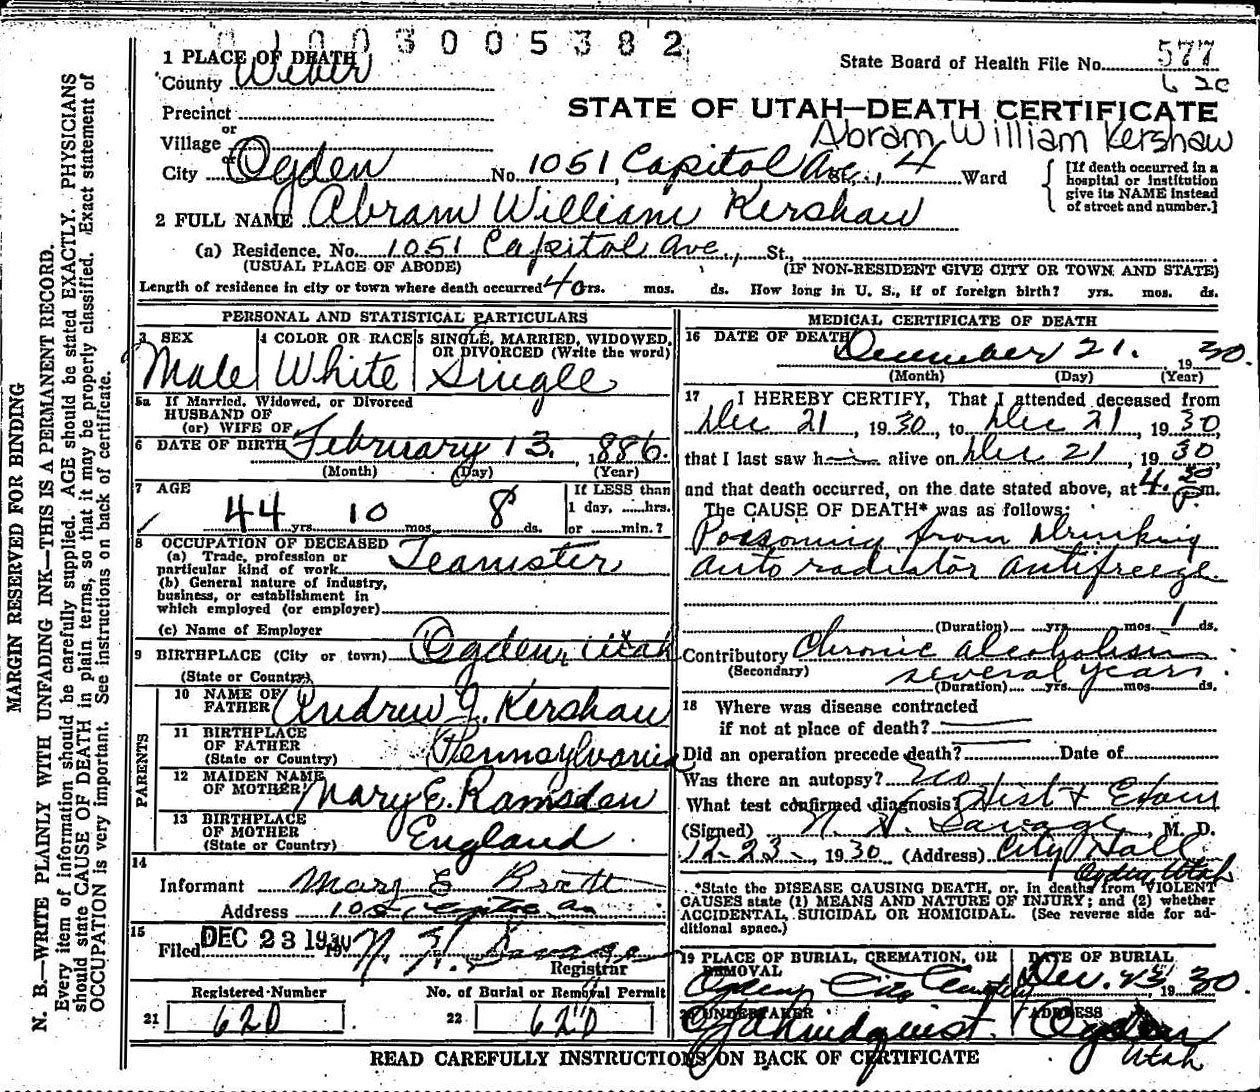 0 1 0 0 3 0 0 5 3 8 2
1 PLACE OF DEATH
County Weber
State Board of Health File No. 577
Precinct
STATE OF UTAH—DEATH CERTIFICATE
or
Village
Abram William Kershaw
or
City Ogden No. 1051 Capitol Ave. St., 4 Ward
[If death occurred in a
hospital or institution
give its NAME instead
of street and number.]
2 FULL NAME Abram William Kershaw
(a) Residence. No. 1051 Capitol Ave., St.,
(USUAL PLACE OF ABODE) (IF NON-RESIDENT GIVE CITY OR TOWN AND STATE)
Length of residence in city or town where death occurred 40 yrs. mos. ds. How long in U. S., if of foreign birth? yrs. mos. ds.
PERSONAL AND STATISTICAL PARTICULARS
3 SEX
Male
4 COLOR OR RACE
White
5 SINGLE, MARRIED, WIDOWED,
OR DIVORCED (Write the word)
Single
5a If Married, Widowed, or Divorced
HUSBAND OF
(or) WIFE OF
6 DATE OF BIRTH February 13, 1886.
(Month) (Day) (Year)
7 AGE
44 yrs. 10 mos. 8 ds.
If LESS than
1 day, ......hrs.
or ......min.?
8 OCCUPATION OF DECEASED
(a) Trade, profession or
particular kind of work Teamster
(b) General nature of industry,
business, or establishment in
which employed (or employer)
(c) Name of Employer
9 BIRTHPLACE (City or town) Ogden, Utah
(State or Country)
PARENTS
10 NAME OF
FATHER Andrew J. Kershaw
11 BIRTHPLACE
OF FATHER
(State or Country) Pennsylvania
12 MAIDEN NAME
OF MOTHER Mary E. Ramsden
13 BIRTHPLACE
OF MOTHER
(State or Country) England
14
Informant Mary E
Address
15
Filed DEC 23 1930 N. H. Savage
Registrar
Registered Number
21 620
No. of Burial or Removal Permit
22 620
MEDICAL CERTIFICATE OF DEATH
16 DATE OF DEATH December 21. 1930.
(Month) (Day) (Year)
17 I HEREBY CERTIFY, That I attended deceased from
Dec 21, 1930, to Dec 21, 1930,
that I last saw him alive on Dec 21, 1930,
and that death occurred, on the date stated above, at 4.30 P.m.
The CAUSE OF DEATH* was as follows:
Poisoning from Drinking
auto radiator antifreeze.
(Duration) yrs. mos. 1 ds.
Contributory Chronic alcoholism
(Secondary) several years
(Duration) yrs. mos. ds.
18 Where was disease contracted
if not at place of death?
Did an operation precede death? Date of
Was there an autopsy? no
What test confirmed diagnosis? Hist & Exam
(Signed) N. H. Savage, M. D.
12-23-, 1930 (Address) City Hall
Ogden, Utah
*State the DISEASE CAUSING DEATH, or, in deaths from VIOLENT
CAUSES state (1) MEANS AND NATURE OF INJURY; and (2) whether
ACCIDENTAL, SUICIDAL OR HOMICIDAL. (See reverse side for ad-
ditional space.)
19 PLACE OF BURIAL, CREMATION, OR
REMOVAL
Ogden City Cemetery
DATE OF BURIAL
Dec. 23, 1930.
20 UNDERTAKER
Lindquist.
ADDRESS
Ogden
Utah
READ CAREFULLY INSTRUCTIONS ON BACK OF CERTIFICATE
MARGIN RESERVED FOR BINDING
N. B.—WRITE PLAINLY WITH UNFADING INK—THIS IS A PERMANENT RECORD.
Every item of information should be carefully supplied. AGE should be stated EXACTLY. PHYSICIANS
should state CAUSE OF DEATH in plain terms, so that it may be properly classified. Exact statement of
OCCUPATION is very important. See instructions on back of certificate.